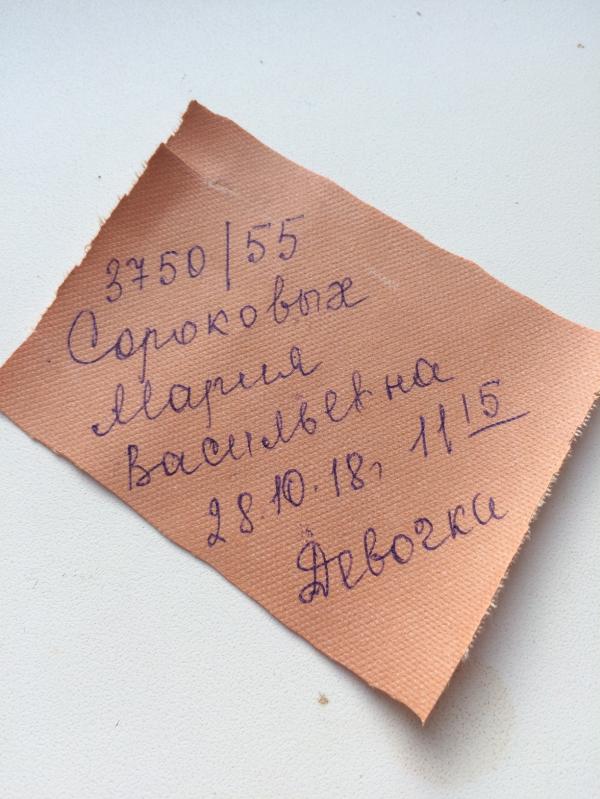 3750/55
Сороковых
Мария
Васильевна
28.10.18, 11 15
Девочка